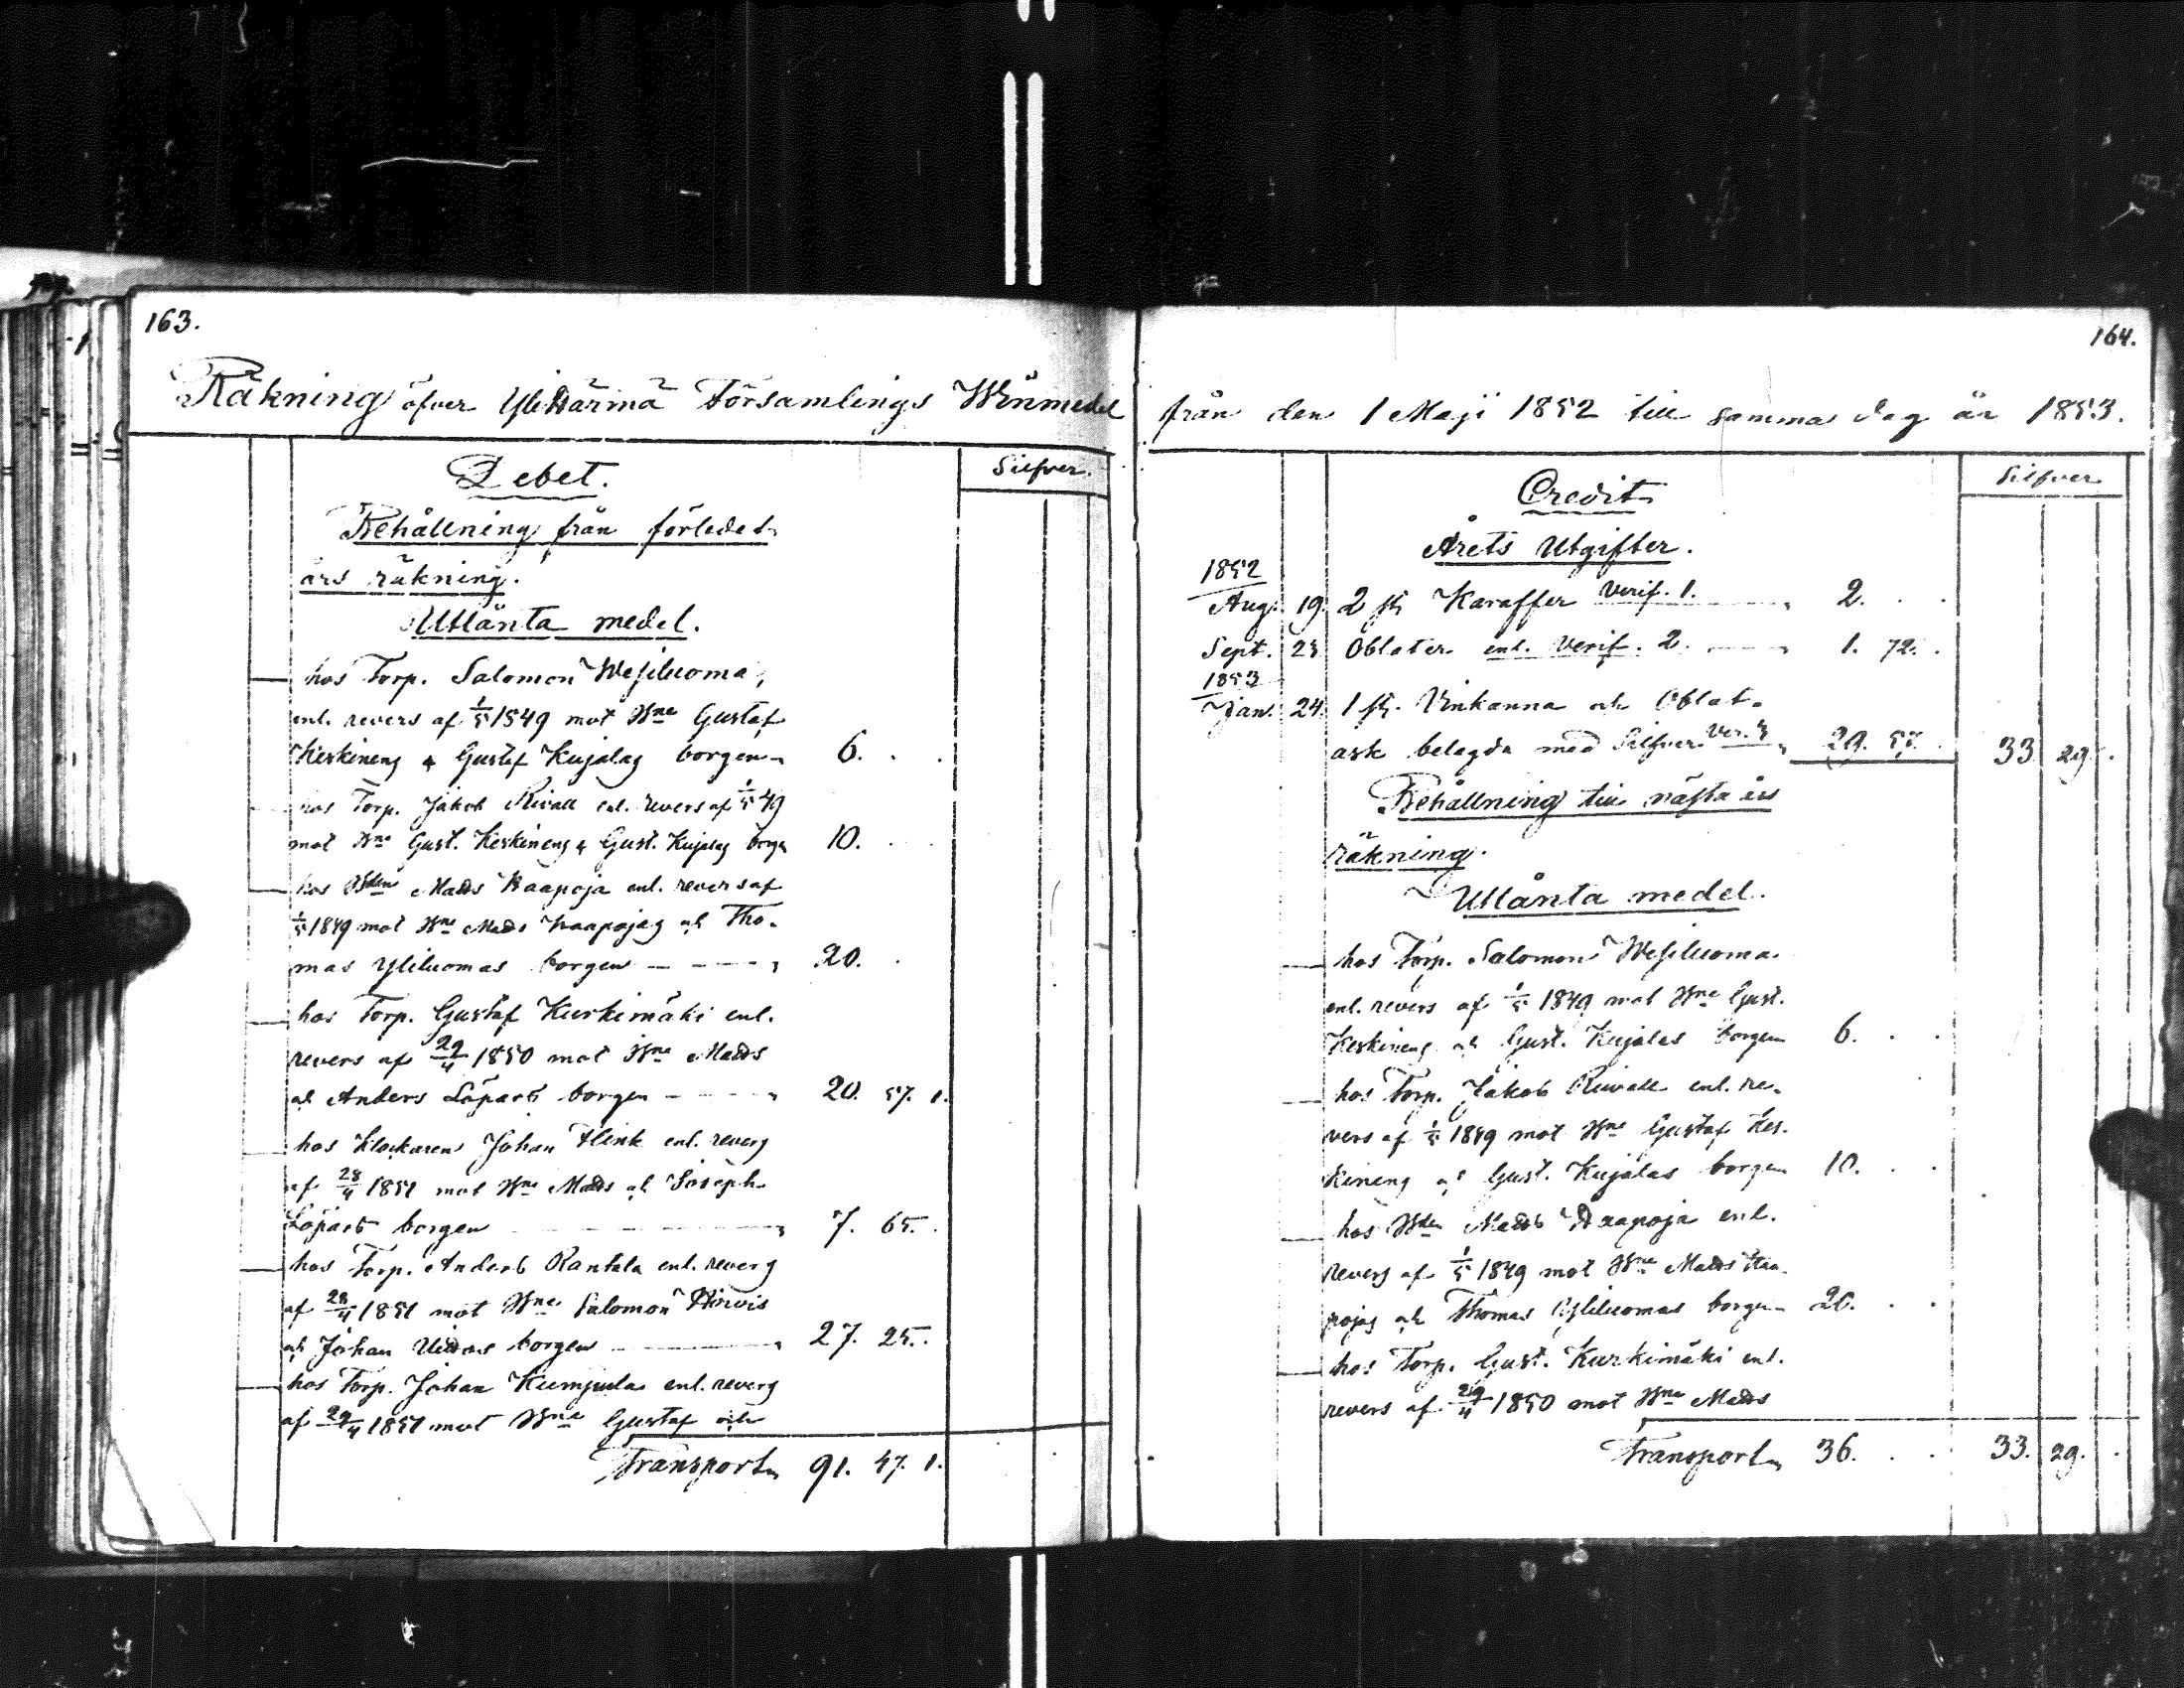 163.
Räkning öfver YliHärmä Församlings Winmedel
Debet.
Silfver.
Behållning från förledet
års räkning.
Utlånta medel.
hos Torp. Salomon Wesiluoma,
enl. revers af 1/5 1849 mot Bne Gustaf
Keskinens & Gustaf Kujalas borgen 6.
hos Torp. Jakob Rivall enl. revers af 1/5 49
mot Bne Gust. Keskinens & Gust. Kujalas borgen 10.
hos Bden Matts Haapoja enl. revers af
1/5 1849 mot Bne Matts Haapojas och Tho-
mas Yliluomas borgen 20.
hos Torp. Gustaf Kurkimäki enl.
revers af 29/4 1850 mot Bne Matts
och Anders Löpars borgen 20. 57. 1.
hos Klockaren Johan Flink enl. revers
af 28/4 1851 mot Bne Matts och Joseph
Löpars borgen 7. 65.
hos Torp. Anders Rantala enl. revers
af 28/4 1851 mot Bne Salomon Hirvis
och Johan borgen 27. 25.
hos Torp. Johan Kumpula enl. revers
af 29/4 1851 mot Bne Gustaf och
Transport 91. 47. 1.
164.
från den 1 Maji 1852 till samma dag år 1853.
Credit
Silfver
Årets Utgifter.
1852
Aug. 19. 2 st. Karaffer Verif. 1. 2.
Sept. 25 Oblater enl. Verif. 2. 1. 72.
1853
Jan. 24. 1 st. Vinkanna och Oblat-
ask belagda med Silfver Ver. 3 29. 57. 33 29.
Behållning till nästa års
räkning.
Utlånta medel.
hos Torp. Salomon Wesiluoma
enl. revers af 1/5 1849 mot Bne Gust.
Keskinens och Gust. Kujalas borgen 6.
hos Torp. Jakob Rivall enl. re-
vers af 1/5 1849 mot Bne Gustaf Kes-
kinens och Gust. Kujalas borgen 10.
hos Bden Matts Haapoja enl.
revers af 1/5 1849 mot Bne Matts Haa-
pojas och Thomas Yliluomas borgen 20.
hos Torp. Gust. Kurkimäki enl.
revers af 29/4 1850 mot Bne Matts
Transport 36. 33. 29.